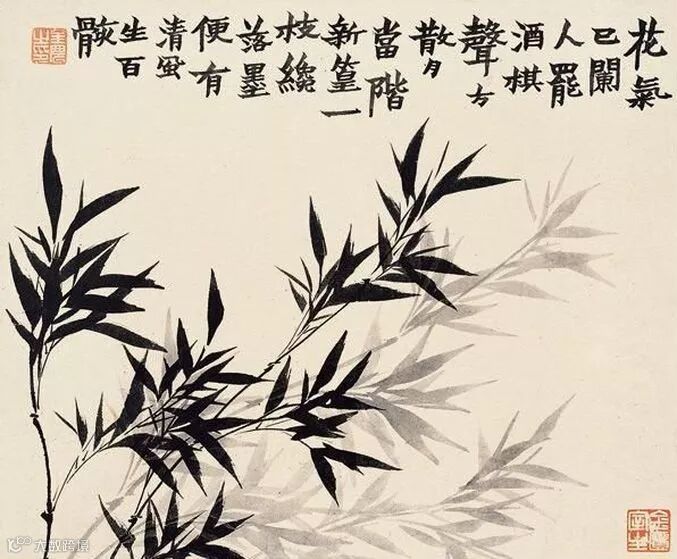 花氣
已闌
人罷
酒棋
聲方
散月
當階
新篁一
枝纔
落墨
便有
清凬
生百
骸
大数跨境